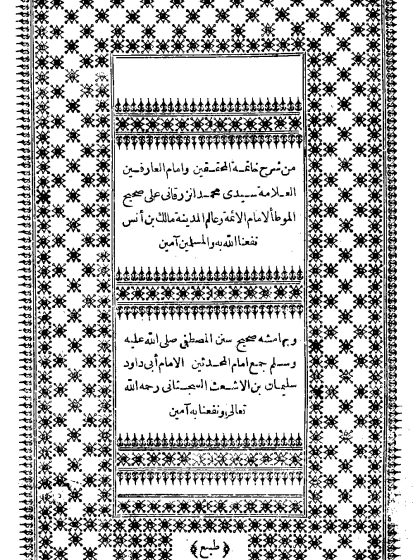 من شرح خاتمة المحققين وامام العارفين
العلامة سيدى محمد الزرقانى على صحيح
الموطأ لامام الائمة وعالم المدينة مالك بن أنس
نفعنا الله به والمسلمين آمين
وبهامشه صحيح سنن المصطفى صلى الله عليه
وسلم جمع امام المحدثين الامام أبى داود
سليمان بن الاشعث السجستانى رحمه الله
تعالى ونفعنا به آمين
﴿ طبع ﴾